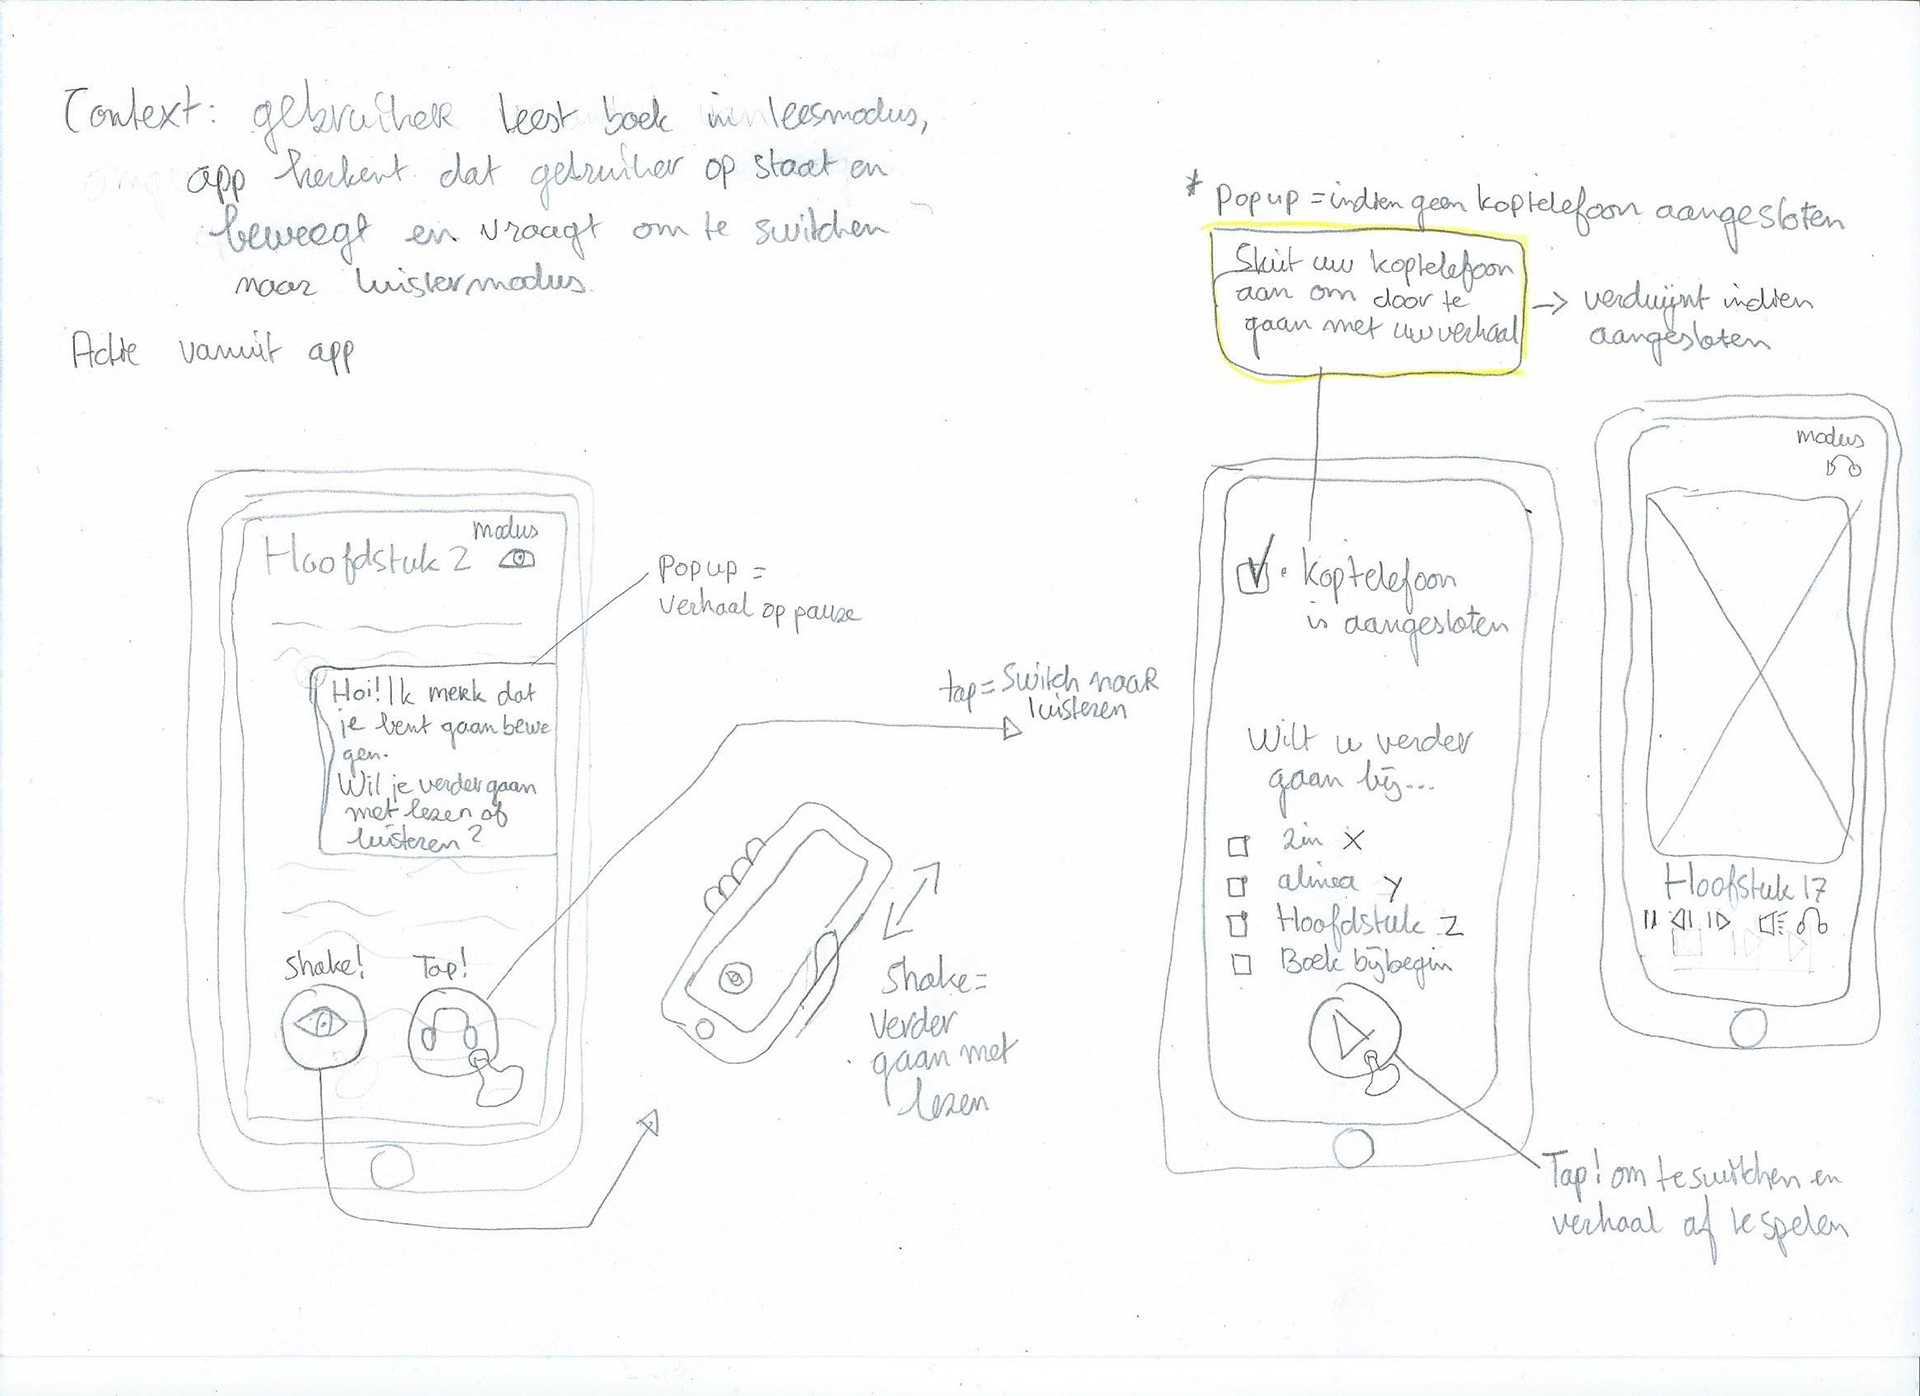 Context: gebruiker leest boek in leesmodus,
app herkent dat gebruiker op staat en
beweegt en vraagt om te switchen
naar luistermodus.
Actie vanuit app
* Popup = indien geen koptelefoon aangesloten
Sluit uw koptelefoon
aan om door te
gaan met uw verhaal
verdwijnt indien
aangesloten
modus
Hoofdstuk 2
Popup =
verhaal op pauze
Hoi! Ik merk dat
je bent gaan bewe
gen.
Wil je verder gaan
met lezen of
luisteren?
Shake!
Tap!
tap = Switch naar
luisteren
Shake =
verder
gaan met
lezen
koptelefoon
is aangesloten
Wilt u verder
gaan bij...
Zin X
alinea y
Hoofdstuk Z
Boek bij begin
Tap! om te switchen en
verhaal af te spelen
modus
Hoofstuk 17